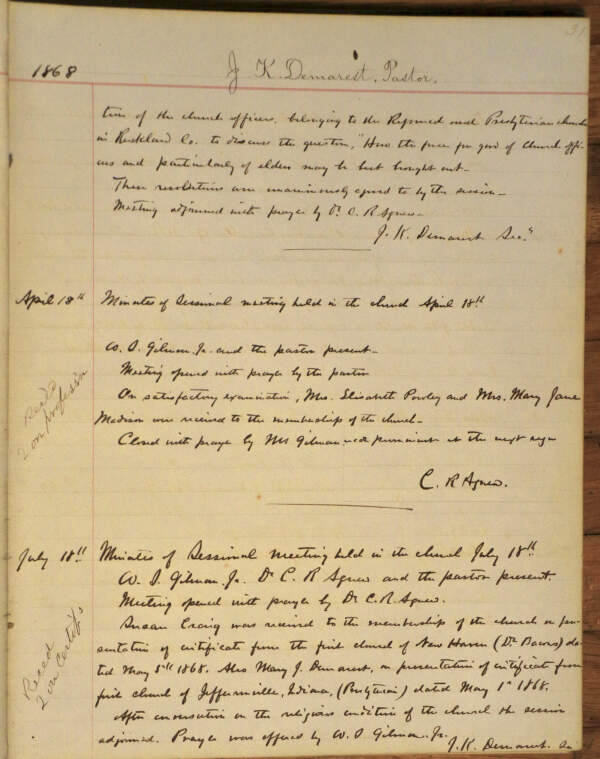 31
1868 J. K. Demarest. Pastor.
tion of the church officers, belonging to the Reformed and Presbyterian churches
in Rockland Co. to discuss the question, "How the power for good of church offi-
cers and particularly of elders may be best brought out.
These resolutions were unanimously agreed to by the session.
Meeting adjourned with prayer by Dr. C. R. Agnew.
J. K. Demarest Sec.y
April 18th Minutes of Sessional meeting held in the church April 18th
W. S. Gilman, Jr. and the pastor present.
Meeting opened with prayer by the pastor
On satisfactory examination, Mrs. Elisabeth Powley and Mrs. Mary Jane
Madison were received to the membership of the church.
Rec'd
2 on profession
Closed with prayer by Mr Gilman at the
C. R. Agnew.
July 18th Minutes of Sessional meeting held in the church July 18th
W. S. Gilman, Jr. Dr C. R Agnew and the pastor present.
Meeting opened with prayer by Dr. C. R. Agnew.
Susan Craig was received to the membership of the church on pre-
sentation of certificate from the first church of New Haven (Dr. Bacon's) da-
ted May 5th 1868. Also Mary J. Demarest, on presentation of certificate from
first church of Jeffersonville, Indiana, (Presbyterian) dated May 1st 1868.
Reced
2 on Certif's
After conversation on the religious condition of the church the session
adjourned. Prayer was offered by W. S Gilman. Jr.
J. K. Demarest. Sec